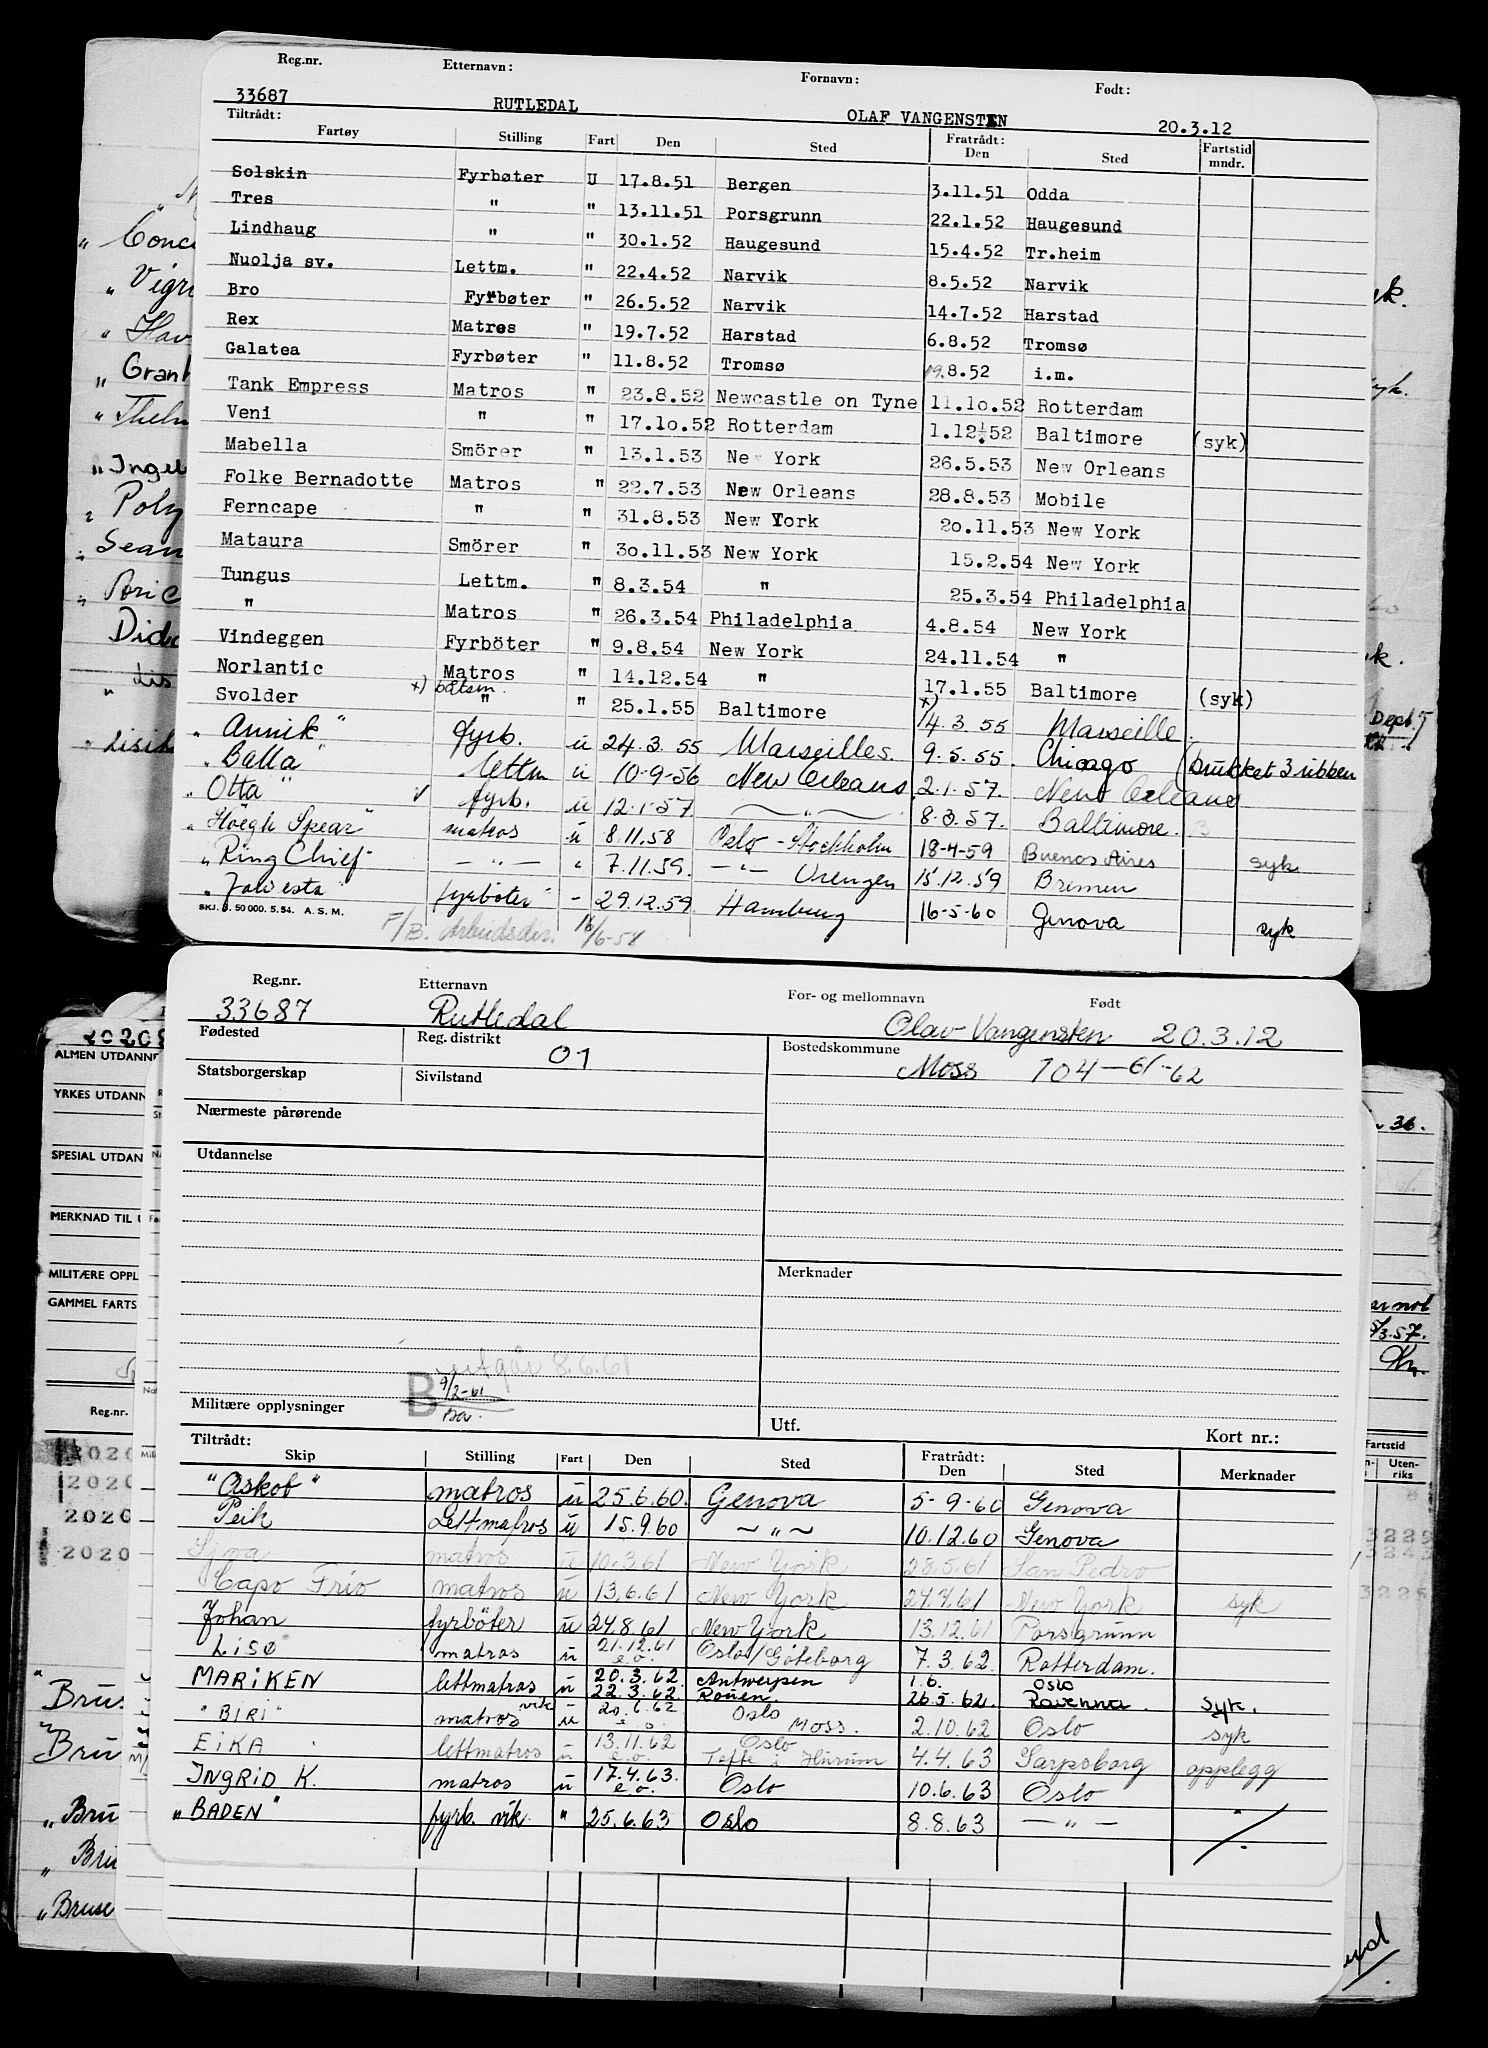 Reg.nr. Etternavn: Fornavn: Født:
33687 RUTLEDAL OLAF VANGENSTEN 20.3.12
Tiltrådt: Fratrådt: Fartstid
Fartøy Stilling Fart Den Sted Den Sted mndr.
Solskin Fyrbøter U 17.8.51 Bergen 3.11.51 Odda
Tres " " 13.11.51 Porsgrunn 22.1.52 Haugesund
Lindhaug " " 30.1.52 Haugesund 15.4.52 Tr.heim
Nuolja sv. Lettm. " 22.4.52 Narvik 8.5.52 Narvik
Bro Fyrbøter " 26.5.52 Narvik 14.7.52 Harstad
Rex Matros " 19.7.52 Harstad 6.8.52 Tromsø
Galatea Fyrbøter " 11.8.52 Tromsø 19.8.52 i.m.
Tank Empress Matros " 23.8.52 Newcastle on Tyne 11.10.52 Rotterdam
Veni " " 17.10.52 Rotterdam 1.12.52 Baltimore (syk)
Mabella Smörer " 13.1.53 New York 26.5.53 New Orleans
Folke Bernadotte Matros " 22.7.53 New Orleans 28.8.53 Mobile
Ferncape " " 31.8.53 New York 20.11.53 New York
Mataura Smörer " 30.11.53 New York 15.2.54 New York
Tungus Lettm. " 8.3.54 " 25.3.54 Philadelphia
" Matros " 26.3.54 Philadelphia 4.8.54 New York
Vindeggen Fyrböter " 9.8.54 New York 24.11.54 "
Norlantic Matros " 14.12.54 " 17.1.55 Baltimore (syk)
x) båtsm.
Svolder " " 25.1.55 Baltimore x) 14.3.55 Marseille.
"Annik" fyrb. u 24.3.55 Marseilles. 9.5.55. Chicago (brukket 3 ribben
"Balla" lettm u 10-9-56 New Orleans. 2.1.57. New Orleans
"Otta" v fyrb. u 12.1.57 — " — 8.3.57. Baltimore.
"Höegh Spear" matros u 8.11.58 Oslo - Stockholm 18-4-59 Buenos Aires syk
"Ring Chief — " — " 7.11.59. — " — Vrengen 15.12.59 Bremen
" fyrböter - 29.12.59 Hamburg 16-5-60 Genova syk
SKJ. B. 50 000. 5.54. A.S.M. F/B. Arbeidsdir. 16/6-58
Reg.nr. Etternavn For- og mellomnavn Født
33687 Rutledal Olav Vangensten 20.3.12
Fødested Reg. distrikt 01 Bostedskommune
Moss 104-61-62
Statsborgerskap Sivilstand
Nærmeste pårørende
Utdannelse
Merknader
utgår 8.6.61
B 9/2-61
Militære opplysninger Utf. Kort nr.:
Tiltrådt: Fratrådt:
Skip Stilling Fart Den Sted Den Sted Merknader
"Askot" matros u 25.6.60. Genova 5-9-60 Genova
Peik Lettmatros u 15.9.60 ~ " ~ 10.12.60 Genova
matros u 10.3.61 New York 28.5.61 San Pedro
Capo Frio matros u 13.6.61 New York 24.7.61 New York syk
Johan fyrböter u 24.8.61 New York 13.12.61 Porsgrunn
LISØ matros u 21.12.61 e.o. Oslo/Göteborg 7.3.62 Rotterdam.
MARIKEN lettmatros u 20.3.62. 22.3.62. Antwerpen Rouen. i.o. 26.5.62. Oslo Ravenna. syk.
"BIRI" matros vik u 20.6.62 e.o. Oslo Moss. 2.10.62 Oslo syk
EIKA lettmatros u 13.11.62 e.o. Oslo Tofte i Hurum 4.4.63 Sarpsborg opplegg
INGRID K. matros u 17.4.63. e.o. Oslo 10.6.63 Oslo
"BADEN" fyrb. vik. " 25.6.63 Oslo 8.8.63 — " —
ALMEN UTDANNE
YRKES UTDANN
SPESIAL UTDAN
MERKNAD TIL U
MILITÆRE OPPL
GAMMEL FARTS
Reg.nr.
2020
2020
2020
2020
Fartstid
Uten-
riks